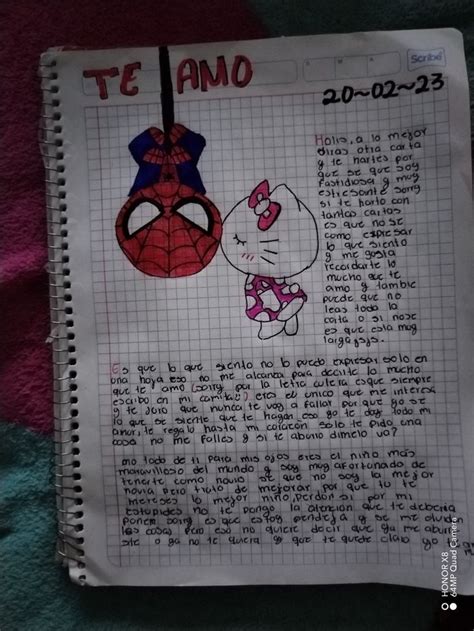 TE AMO
Scribe
20~02~23
Holis, a lo mejor
diras otra carta
y te hartes por
que se que soy
fastidiosa y muy
estresante sorry
si te harto con
tantas cartas
es que no se
como expresar
lo que siento
y me gusta
recordarte lo
mucho que te
amo y tambie
puede que no
leas todo la
carta o si nose
es que esta muy
larga jsjs.
Es que lo que siento no lo puedo expresar solo en
una hoya eso no me alcanza para decirte lo mucho
que te amo (sorry por la letra culera esque siempre
escribo en mi camita) eres el unico que me interesa
y te juro que nunca te voy a fallar por que yo se
lo que se siente que te hagan eso yo te doy todo mi
amor, te regalo hasta mi corazon solo te pido una
cosa no me falles y si te aburo dimelo va?
Amo todo de ti para mis ojos eres el niño mas
maravilloso del mundo y soy muy afortunado de
tenerte como novio se que no soy la mejor
novia pero trato de mejorar por que tu te
mereses lo mejor niño, perdon si por mi
estupides no te pongo la atencion que te deberia
poner sorry es que estoy pendeja y se me olvida
las cosas pero eso no quiere decir que ya me aburi
ste o ya no te quiera y que te quede claro yo
HONOR X8
64MP Quad Camera